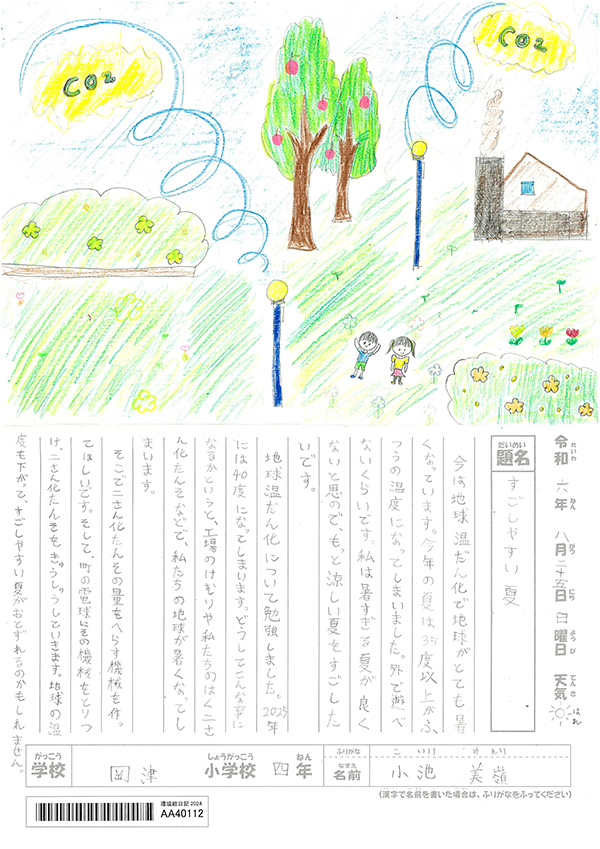 CO2
CO2
令和 六年 八月二十五日 日曜日 天気 はれ
れいわ ねん がつ にち よう び てんき
だいめい
題名 すごしやすい夏
今は地球温だん化で地球がとても暑
くなっています。今年の夏は35度以上がふ
つうの温度になってしまいました。外で遊べ
ないくらいです。私は暑すぎる夏が良く
ないと思ので、もっと涼しい夏をすごした
いです。
地球温だん化について勉強しました。2025年
には40度になってしまいます。どうしてこんな事に
なるかというて、工場のけむりや私たちのはく二さ
ん化たんそなどで、私たちの地球が暑くなってし
まいます。
そこで二さん化たんその量をへらす機械を作っ
てほしいです。そして、町の電球にその機械をとりつ
け、二さん化たんそをきゅうしゅうしていきます。地球の温
度も下がって、すごしやすい夏がおとずれるのかもしれません。
がっこう しょうがっこう ねん ふりがな
学校 岡津 小学校 四年 なまえ 名前 小池 美嶺
(漢字で名前を書いた場合は、ふりがなをふってください)
環境絵日記 2024
AA40112